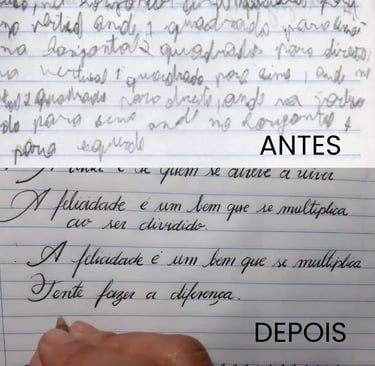 no vertical ande 1 quadrado para cima
na horizontal 2 quadrados para direita,
na vertical 1 quadrado para cima, ande na
2 quadrado para direita, ande na
para cima ande na horizontal 1
para esquerda
ANTES
de quem se atreve a viver
A felicidade é um bem que se multiplica
ao ser dividido.
A felicidade é um bem que se multiplica
Tente fazer a diferença.
DEPOIS